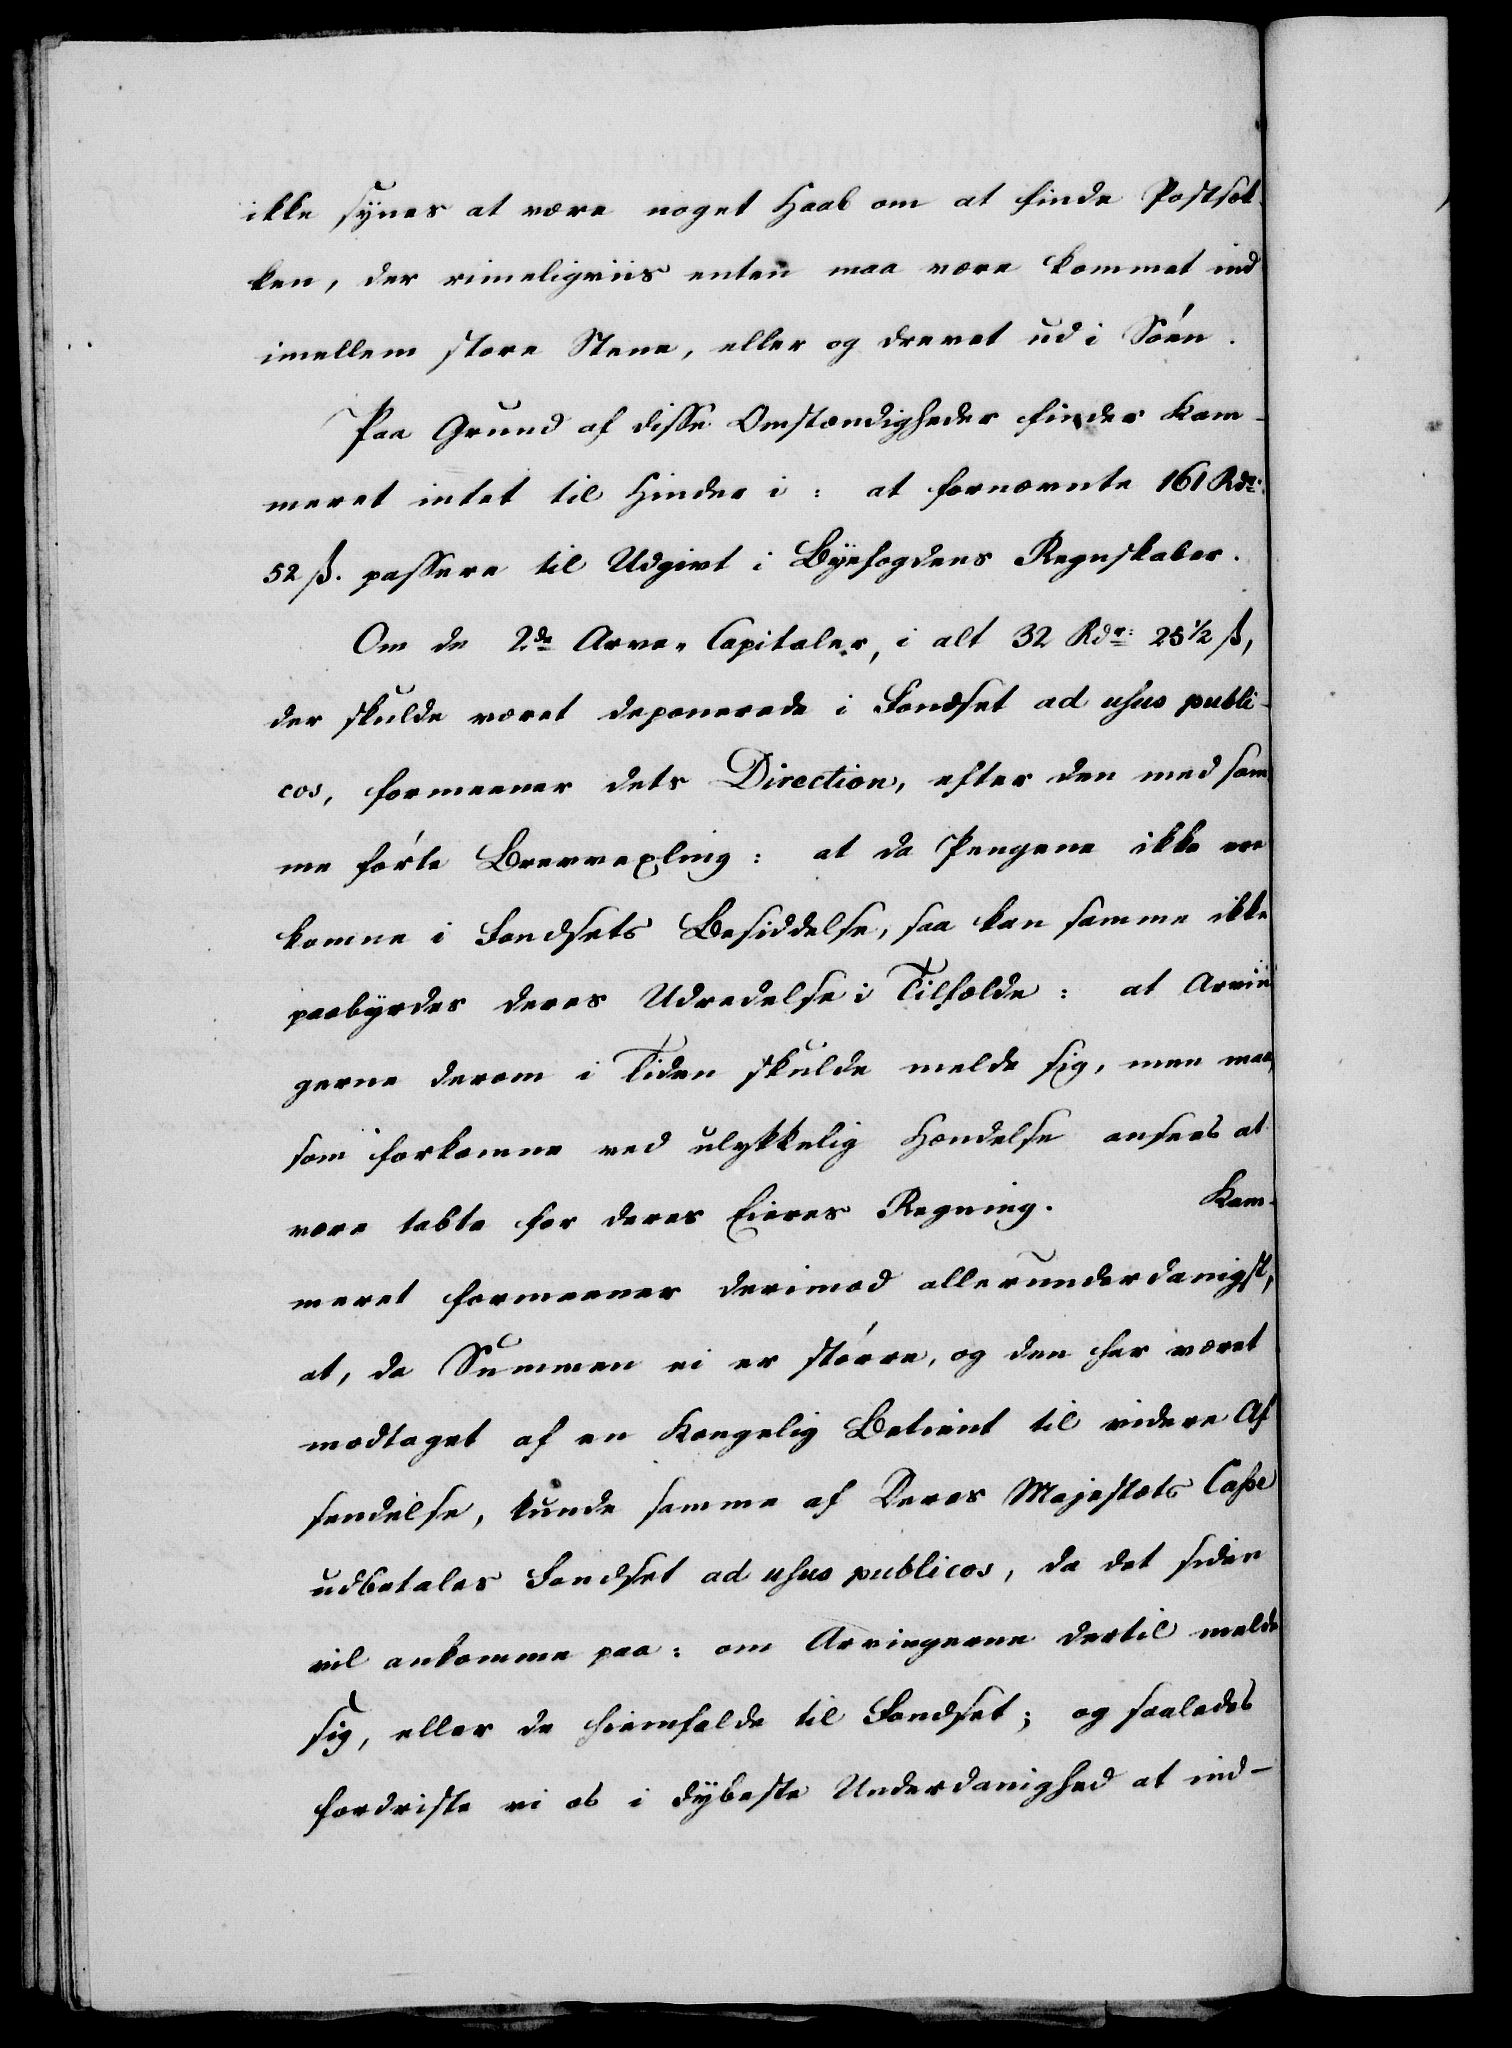 ikke synes at være noget Haab om at finde Postsæk-
ken, der rimeligviis enten maa være kommet ind
imellem store Stene, eller og drevet ud i Søen.
Paa Grund af disse Omstændigheder finder Kam-
meret intet til Hinder i: at fornævnte 161 Rdr:
52 ß. passere til Udgivt i Byefogdens Regnskaber.
Om de 2de Arve-Capitaler, i alt 32 Rdr: 25½ ß,
der skulde været deponerede i Fondset ad usus publi-
cos, formeener dets Direction, efter den med sam
me førte Brevvexling: at da Pengene ikke ere
komne i Fondsets Besiddelse, saa kan samme ikke
paabyrdes deres Udredelse i Tilfælde: at Arvin
gerne derom i Tiden skulde melde sig, men maa,
som forkomne ved ulykkelig Hændelse ansees at
være tabte for deres Eieres Regning. Kam-
meret formeener derimod allerunderdanigst,
at, da Summen ei er større, og den har været
modtaget af en Kongelig Betient til videre Af
sendelse, kunde samme af Deres Majestæts Casse
udbetales Fondset ad usus publicos, da det siden
vil ankomme paa: om Arvingerne dertil melde
sig, eller de hiemfalde til Fondset; og saaledes
fordriste vi os i dybeste Underdanighed at ind-